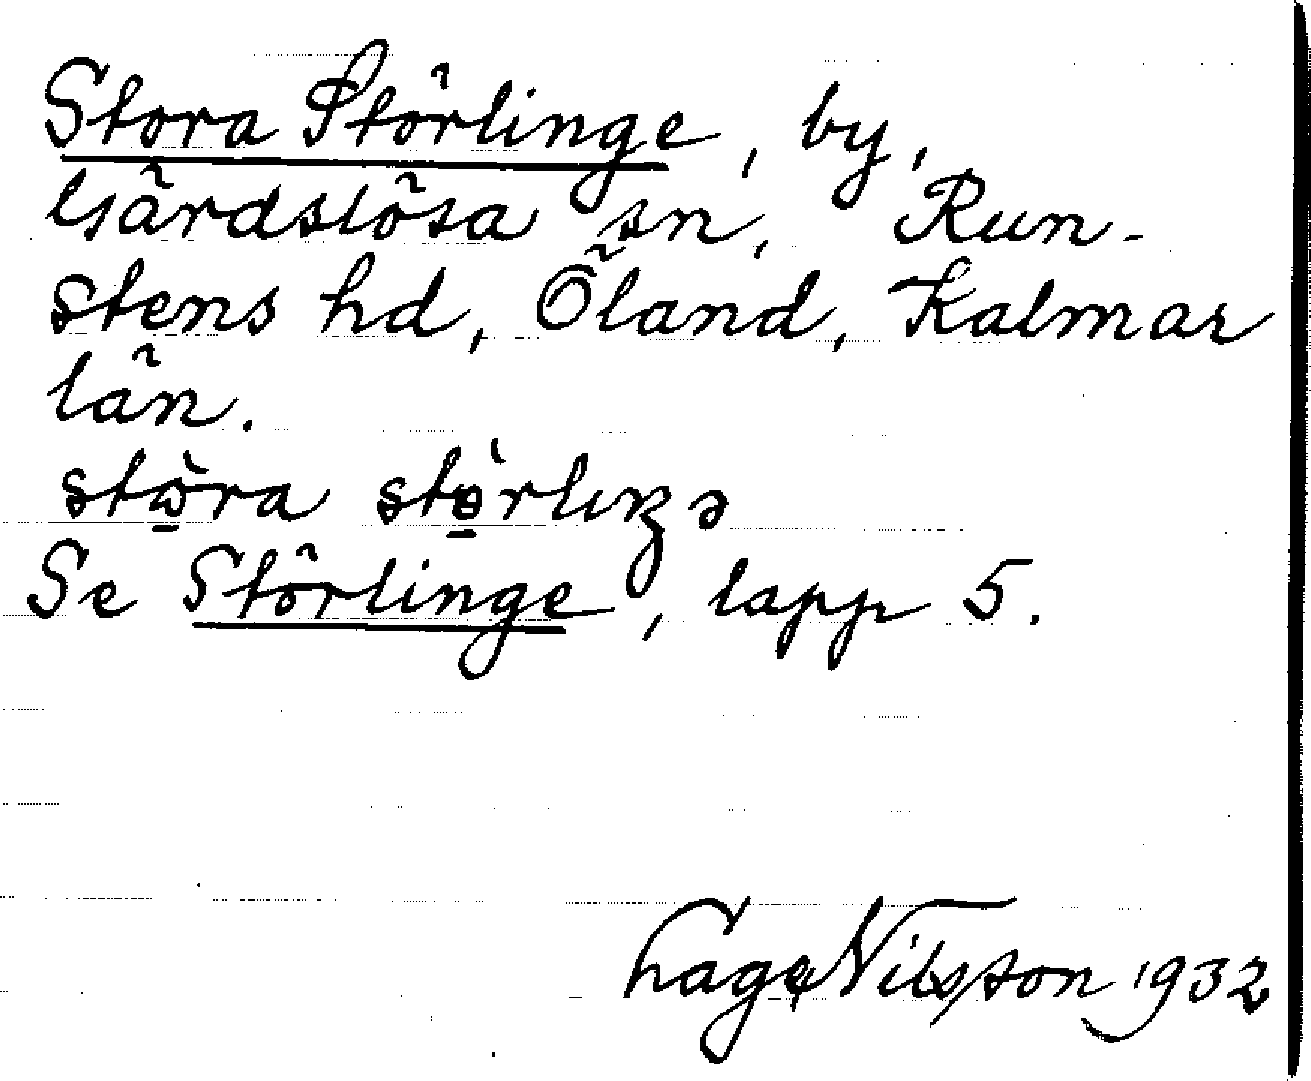 Stora Störlinge, by,
Gärdslösa sn, Run-
stens hd, Öland, Kalmar
län.
stɷ̀ra stɵ̀rlıŋə
Se Störlinge, lapp 5.
Lage Nilsson 1932